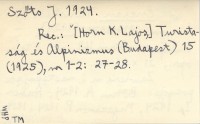 Szőts J. 1924.
Rec.: [Horn K. Lajos] Turista-
ság és Alpinizmus (Budapest) 15
(1925), no 1-2: 27-28.
WHB
TM